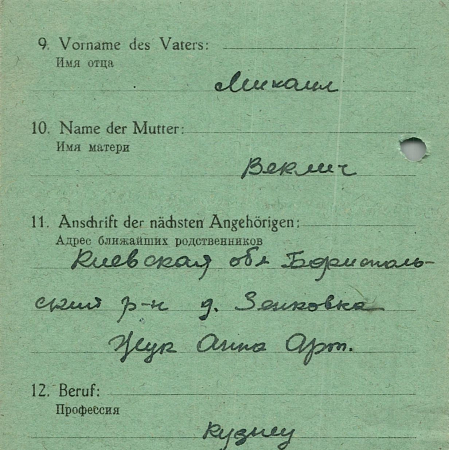 9. Vorname des Vaters:
Имя отца
Михаил
10. Name der Mutter:
Имя матери
Веклич
11. Anschrift der nächsten Angehörigen:
Адрес ближайших родственников
Киевская обл Бориспаль-
ский р-н д. Зенковка
Жук Анна Арт.
12. Beruf:
Профессия
кузнец